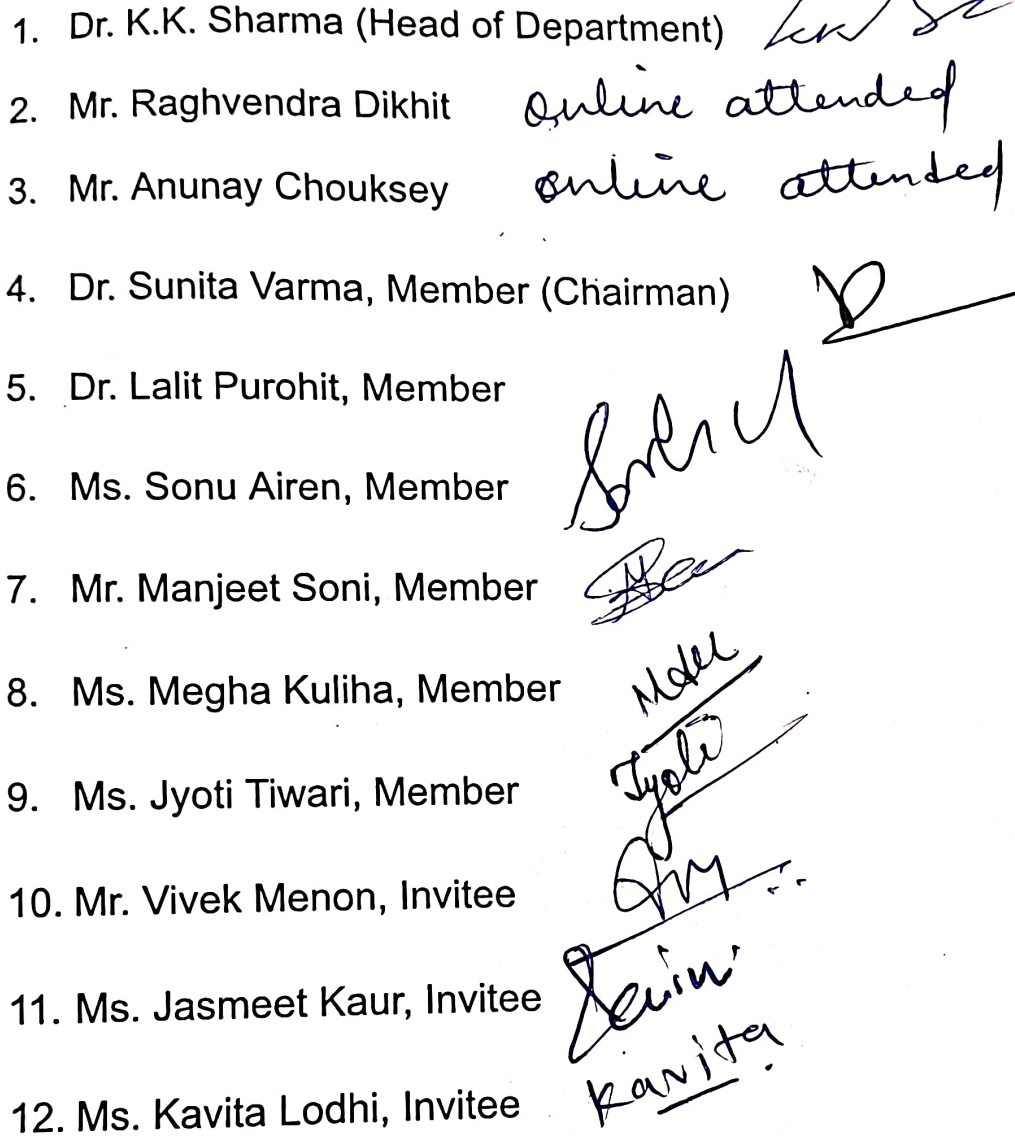 1. Dr. K.K. Sharma (Head of Department)
2. Mr. Raghvendra Dikhit online attended
3. Mr. Anunay Chouksey online attended
4. Dr. Sunita Varma, Member (Chairman)
5. Dr. Lalit Purohit, Member
6. Ms. Sonu Airen, Member
7. Mr. Manjeet Soni, Member
8. Ms. Megha Kuliha, Member
9. Ms. Jyoti Tiwari, Member Jyoti
10. Mr. Vivek Menon, Invitee
11. Ms. Jasmeet Kaur, Invitee
12. Ms. Kavita Lodhi, Invitee Kavita